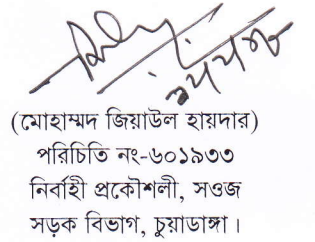 (মোহাম্মদ জিয়াউল হায়দার)
পরিচিতি নং-৬০১৯৩৩
নির্বাহী প্রকৌশলী, সওজ
সড়ক বিভাগ, চুয়াডাঙ্গা।